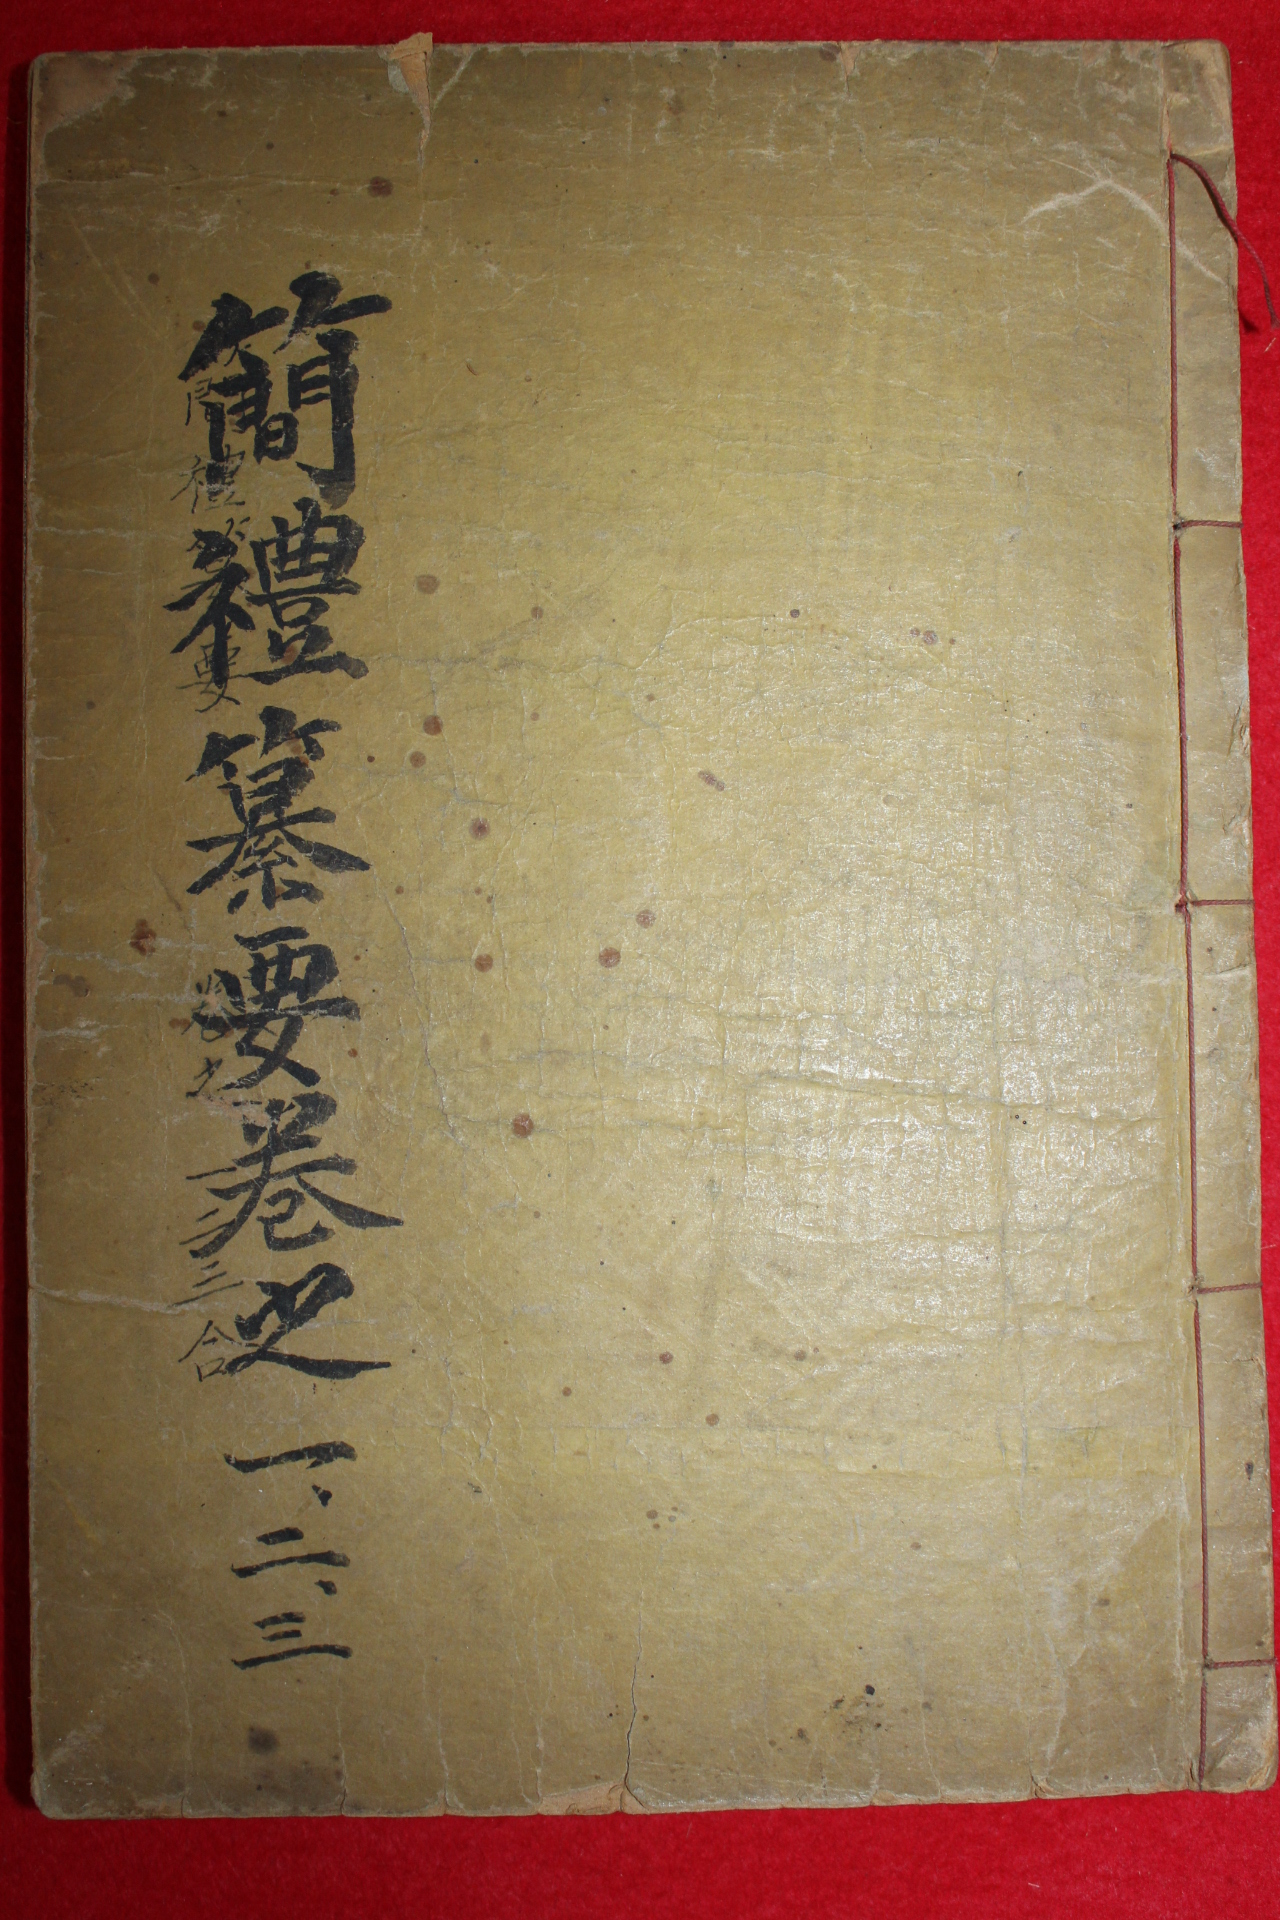 簡禮纂要卷之 一、二、三
簡禮纂要 卷之 一二三合